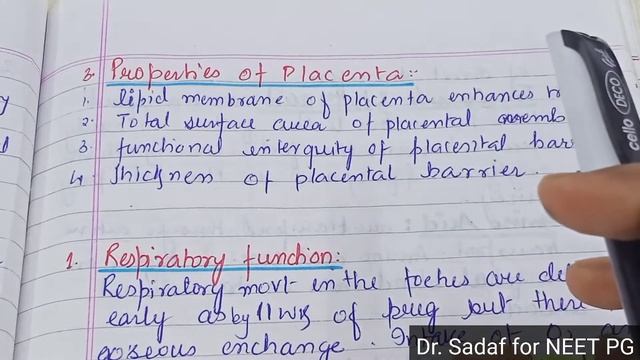 3. Properties of Placenta:-
1. lipid membrane of placenta enhances
2. Total surface area of placental memb
3. functional interguity of placental bar
4. thickness of placental barrier.
1. Respiratory function:
Respiratory movt in the foetus are de
early as by 11 wks of preg but there
gaseous exchange. Intake of O2 an
cello DECO
Dr. Sadaf for NEET PG